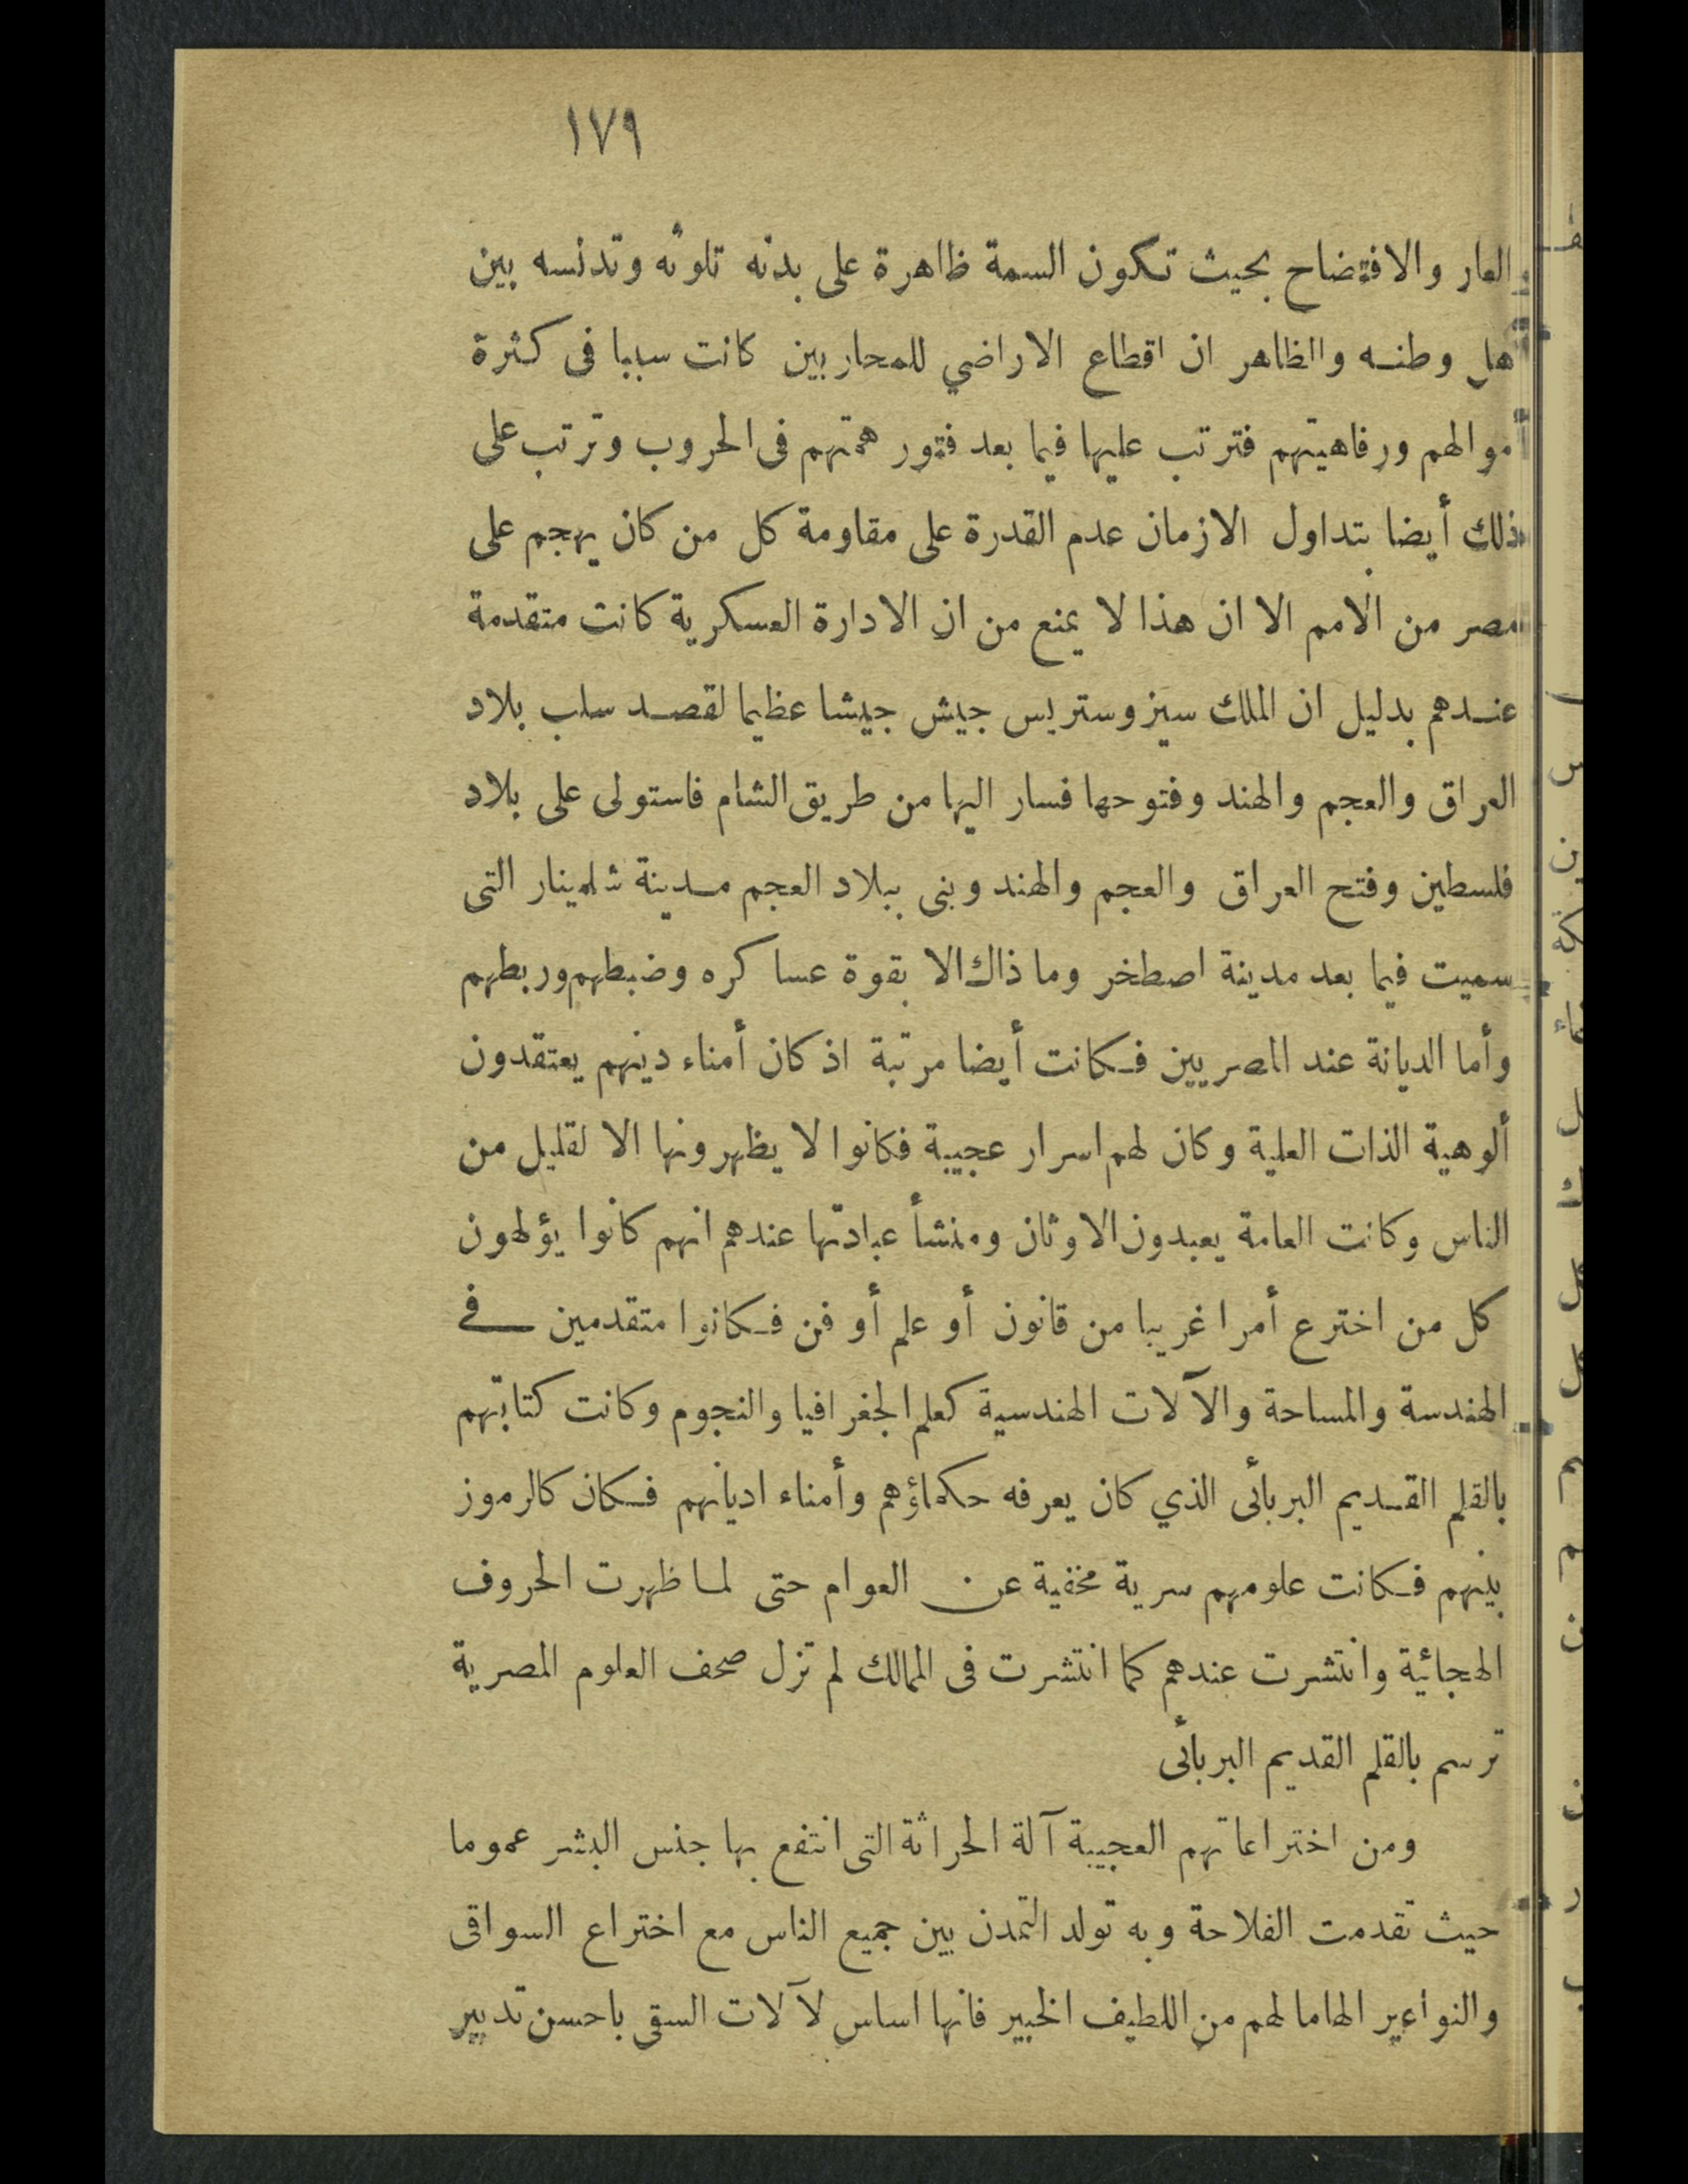 ١٧٩
والعار والافتضاح بحيث تكون السمة ظاهرة على بدنه تلوثه وتدنسه بين
أهل وطنه والظاهر ان اقطاع الاراضي للمحاربين كانت سببا فى كثرة
أموالهم ورفاهيتهم فترتب عليها فيما بعد فتور همتهم فى الحروب وترتب على
ذلك أيضا بتداول الازمان عدم القدرة على مقاومة كل من كان يهجم على
مصر من الأمم الا ان هذا لا يمنع من ان الادارة العسكرية كانت متقدمة
عندهم بدليل ان الملك سيزوستريس جيش جيشا عظيما لقصد سلب بلاد
العراق والعجم والهند وفتوحها فسار اليها من طريق الشام فاستولى على بلاد
فلسطين وفتح العراق والعجم والهند وبنى ببلاد العجم مدينة شلمينار التى
سميت فيما بعد مدينة اصطخر وما ذاك الا بقوة عساكره وضبطهم وربطهم
وأما الديانة عند المصريين فكانت أيضا مرتبة اذ كان أمناء دينهم يعتقدون
ألوهية الذات العلية وكان لهم اسرار عجيبة فكانوا لا يظهرونها الا لقليل من
الناس وكانت العامة يعبدون الاوثان ومنشأ عبادتها عندهم انهم كانوا يؤلهون
كل من اخترع أمرا غريبا من قانون أو علم أو فن فكانوا متقدمين في
الهندسة والمساحة والآلات الهندسية كعلم الجغرافيا والنجوم وكانت كتابتهم
بالقلم القديم البربائى الذي كان يعرفه حكماؤهم وأمناء اديانهم فكان كالرموز
بينهم فكانت علومهم سرية مخفية عن العوام حتى لما ظهرت الحروف
الهجائية وانتشرت عندهم كما انتشرت فى الممالك لم تزل صحف العلوم المصرية
ترسم بالقلم القديم البربائى
ومن اختراعاتهم العجيبة آلة الحراثة التى انتفع بها جنس البشر عموما
حيث تقدمت الفلاحة وبه تولد التمدن بين جميع الناس مع اختراع السواقى
والنواعير الهاما لهم من اللطيف الخبير فانها اساس لآلات السقى باحسن تدبير